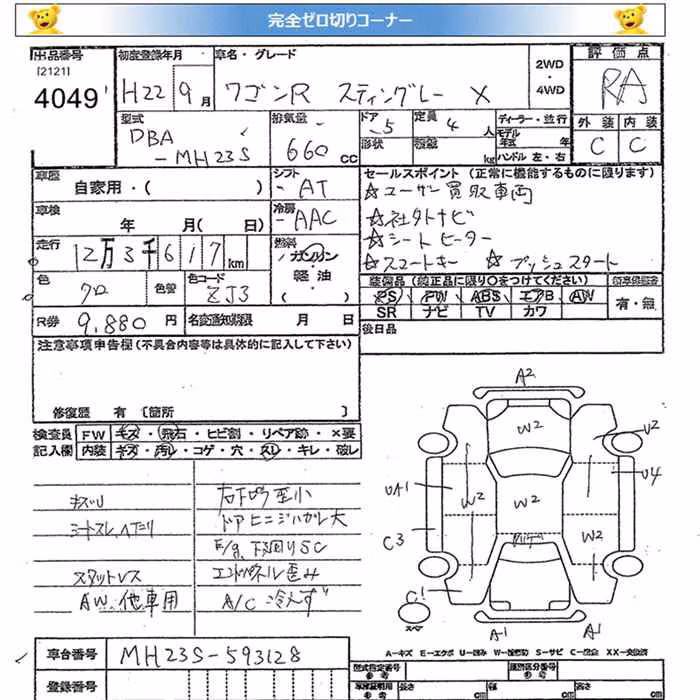 完全ゼロ切りコーナー
出品番号 初度登録年月 車名・グレード 2WD ・ 4WD 評価点
[2121]
4049 H22年9月 ワゴンR スティングレー X RA
型式 排気量 ドア 定員 ディーラー・並行 外装 内装
DBA -MH23S 660cc 5 4人 モデル年式 年 C C
形状 積載 kg ハンドル 左・右
車歴 シフト セールスポイント (正常に機能するものに限ります)
自家用・( ) AT ☆ユーザー買取車両
車検 冷房 ☆社外ナビ
年 月( 日) AAC ☆シートヒーター
走行 燃料 ☆スマートキー ☆プッシュスタート
12万3千617km ガソリン 軽油 ( )
色 色替 色コード 装備品 (純正品に限り○をつけてください)
クロ ZJ3 PS PW ABS エアB AW 有・無
SR ナビ TV カワ
R券 9,880円 名変通知期限 月 日 後日品
注意事項申告欄 (不具合内容等は具体的に記入して下さい)
修復歴 有 [箇所 ]
検査員 FW キズ・飛石・ヒビ割・リペア跡・×要
記入欄 内装 キズ・汚レ・コゲ・穴・スレ・キレ・破レ
キズU 右下回り歪小
シートスレ、ヘタリ ドアヒンジハガレ大
E/g、下回りSC
スタットレス エンドパネル歪み
AW.他車用 A/C 冷えず
A2
W2 U2
UA1 W2 W2 U4
C3 W2
C1
スペア A1 A1
A-キズ E-エクボ U-凹み W-補修跡 S-サビ C-腐食 XX-交換済
車台番号 MH23S-593128 型式指定番号 参考 類別区分番号 参考
登録番号 車庫証明用 参考 長さ cm 幅 cm 高さ cm